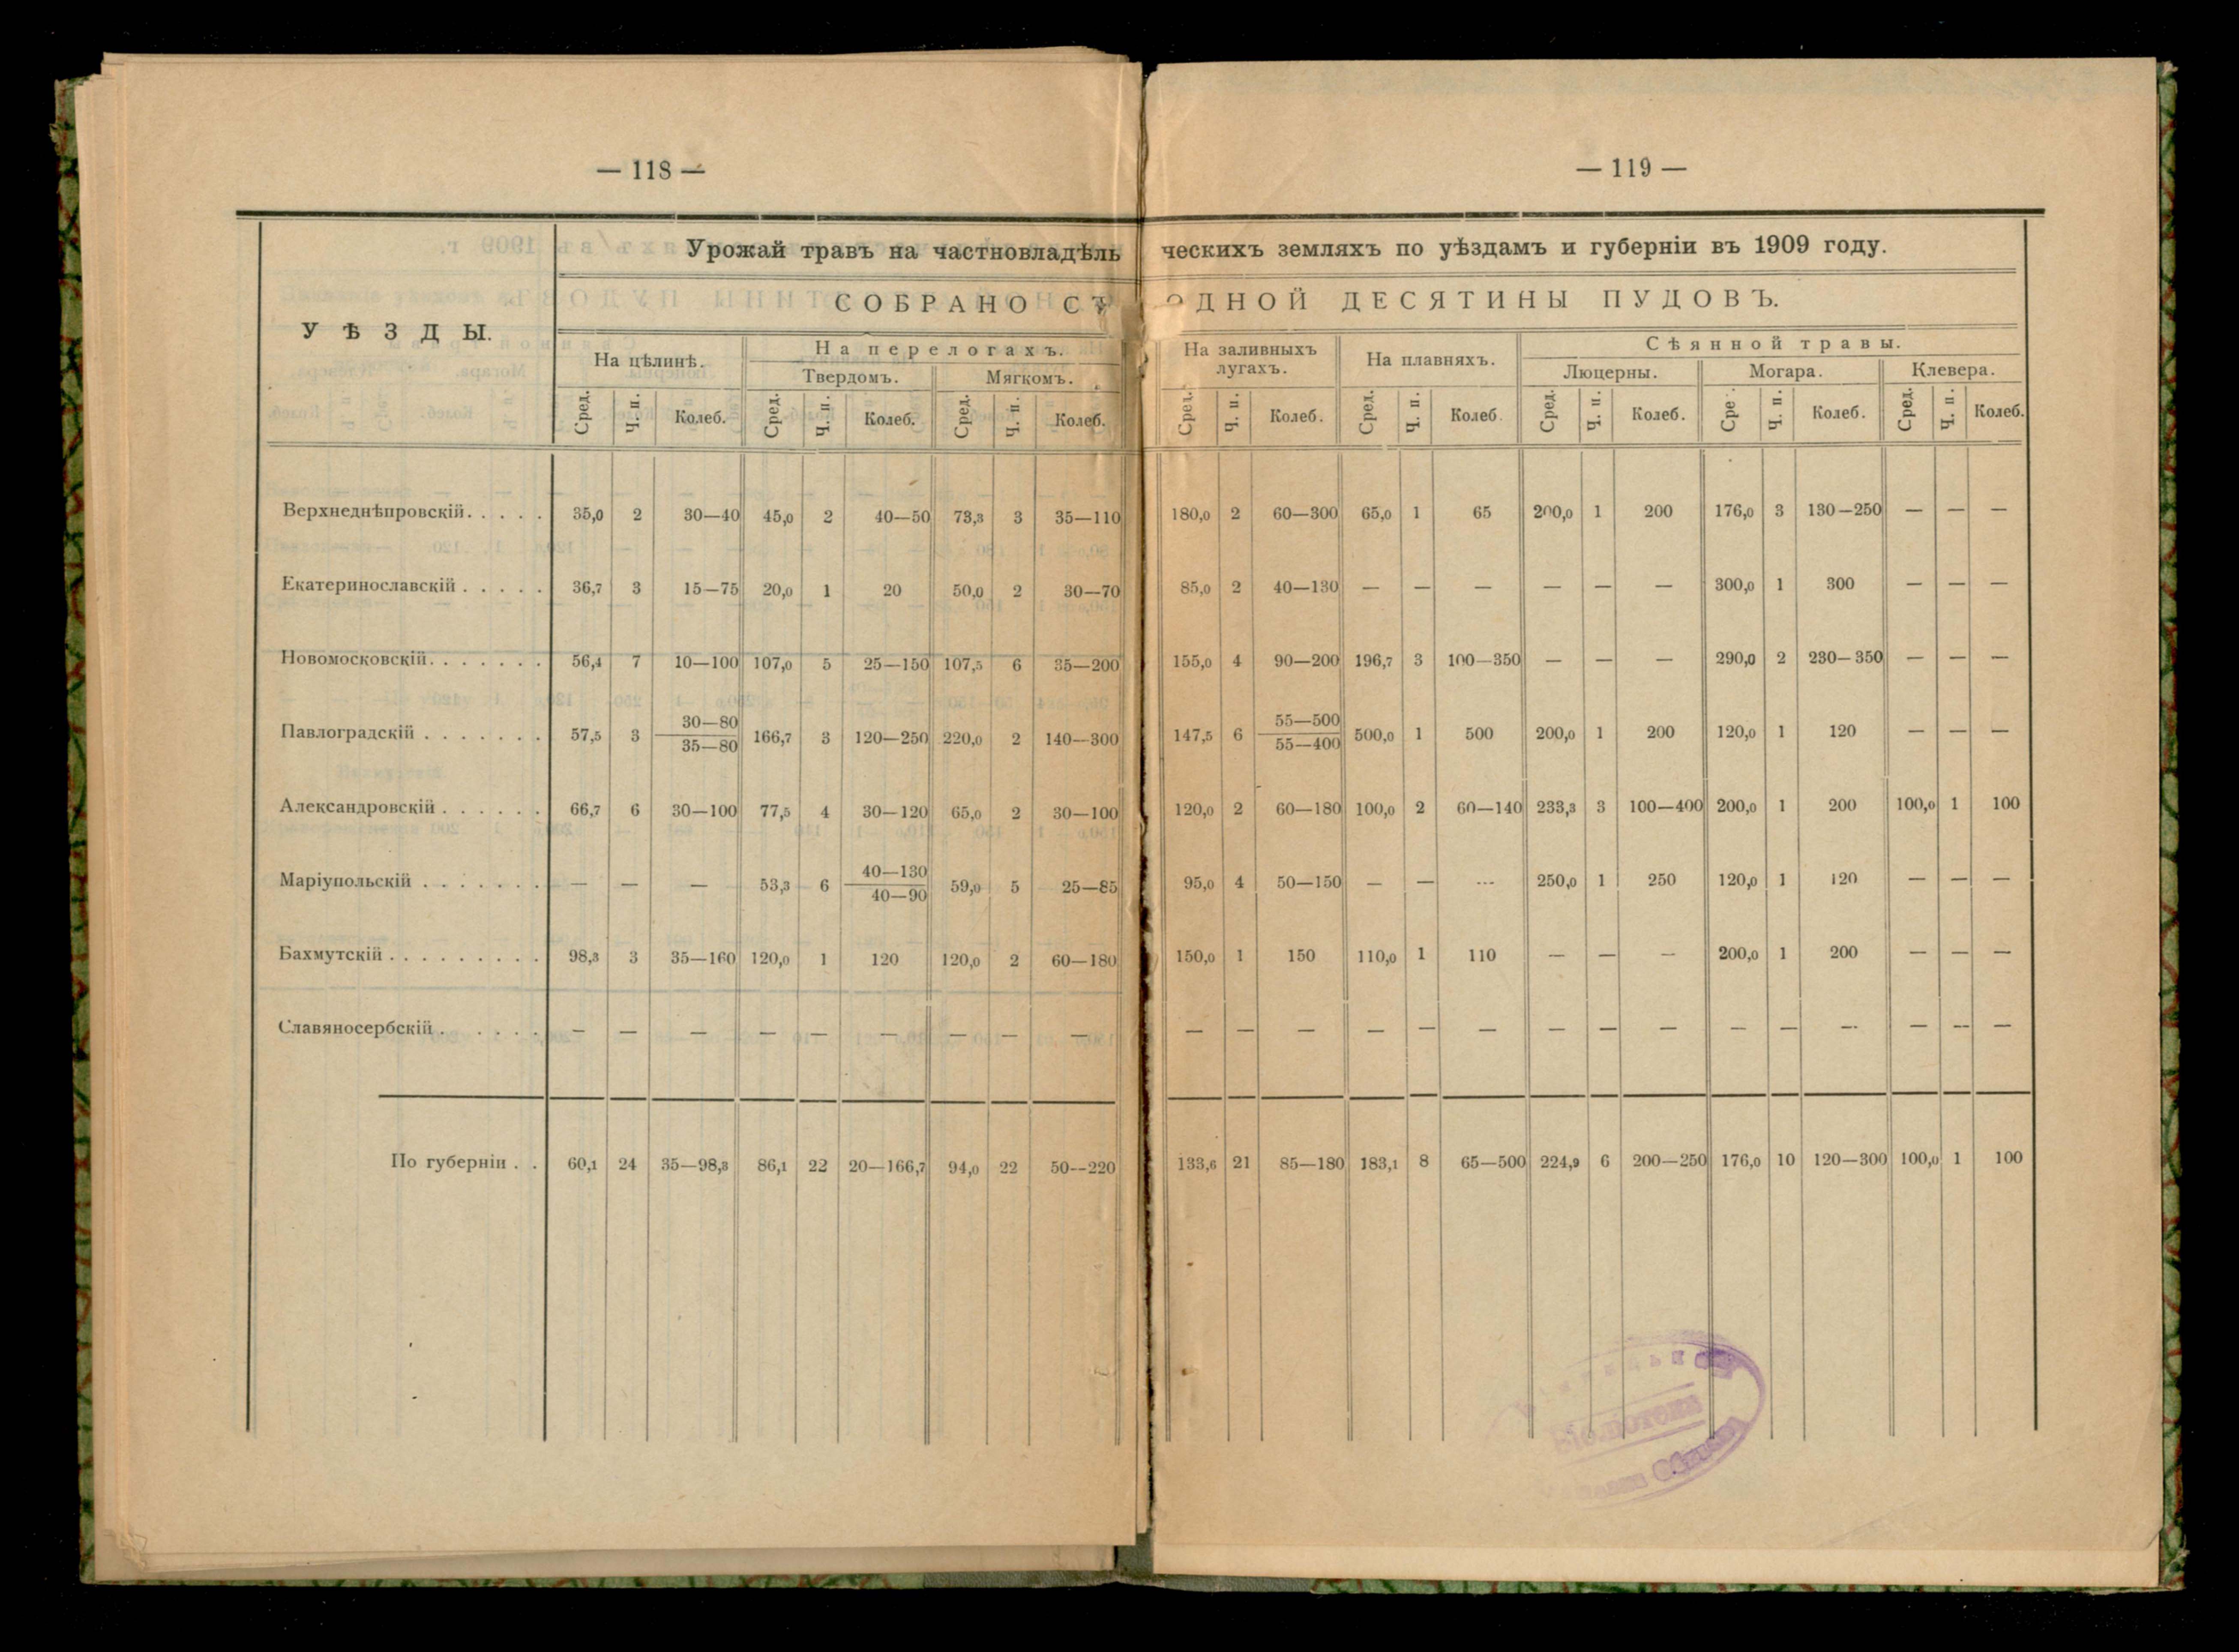 — 118 —
Урожай травъ на частновладѣль
СОБРАНО СЪ
УѢЗДЫ.
На цѣлинѣ.
На перелогахъ.
Твердомъ. Мягкомъ.
Сред. Ч. п. Колеб. Сред. Ч. п. Колеб. Сред. Ч. п. Колеб.
Верхнеднѣпровскій. . . . . 35,0 2 30—40 45,0 2 40—50 73,3 3 35—110
Екатеринославскій . . . . . 36,7 3 15—75 20,0 1 20 50,0 2 30—70
Новомосковскій. . . . . . . 56,4 7 10—100 107,0 5 25—150 107,5 6 35—200
Павлоградскій . . . . . . . 57,5 3 30—80 35—80 166,7 3 120—250 220,0 2 140—300
Александровскій . . . . . . 66,7 6 30—100 77,5 4 30—120 65,0 2 30—100
Маріупольскій . . . . . . . — — — 53,3 6 40—130 40—90 59,0 5 25—85
Бахмутскій . . . . . . . . . 98,3 3 35—160 120,0 1 120 120,0 2 60—180
Славяносербскій . . . . . — — — — — — — — —
По губерніи . . 60,1 24 35—98,3 86,1 22 20—166,7 94,0 22 50—220
— 119 —
ческихъ земляхъ по уѣздамъ и губерніи въ 1909 году.
ОДНОЙ ДЕСЯТИНЫ ПУДОВЪ.
На заливныхъ
лугахъ.
На плавняхъ.
Сѣянной травы.
Люцерны. Могара. Клевера.
Сред. Ч. п. Колеб. Сред. Ч. п. Колеб. Сред. Ч. п. Колеб. Сре . Ч. п. Колеб. Сред. Ч. п. Колеб.
180,0 2 60—300 65,0 1 65 200,0 1 200 176,0 3 130—250 — — —
85,0 2 40—130 — — — — — — 300,0 1 300 — — —
155,0 4 90—200 196,7 3 100—350 — — — 290,0 2 230—350 — — —
147,5 6 55—500 55—400 500,0 1 500 200,0 1 200 120,0 1 120 — — —
120,0 2 60—180 100,0 2 60—140 233,3 3 100—400 200,0 1 200 100,0 1 100
95,0 4 50—150 — — — 250,0 1 250 120,0 1 120 — — —
150,0 1 150 110,0 1 110 — — — 200,0 1 200 — — —
— — — — — — — — — — — — — — —
133,6 21 85—180 183,1 8 65—500 224,9 6 200—250 176,0 10 120—300 100,0 1 100